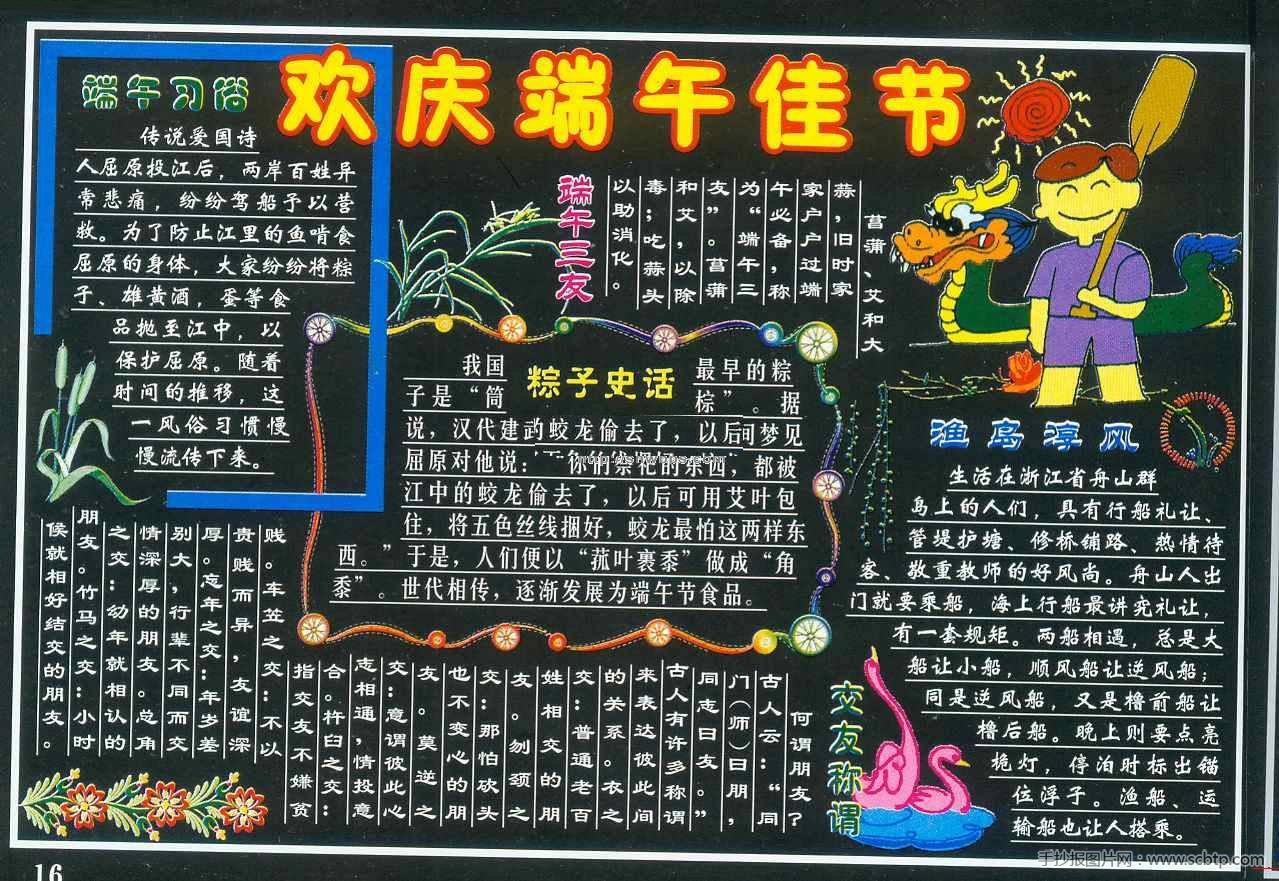 欢庆端午佳节
端午习俗
传说爱国诗
人屈原投江后，两岸百姓异
常悲痛，纷纷驾船予以营
救。为了防止江里的鱼啃食
屈原的身体，大家纷纷将粽
子、雄黄酒，蛋等食
品抛至江中，以
保护屈原。随着
时间的推移，这
一风俗习惯慢
慢流传下来。
端午三友
菖蒲、艾和大
蒜，旧时家
家户户过端
午必备，称
为“端午三
友”。菖蒲
和艾，以除
毒；吃蒜头
以助消化。
粽子史话
我国 最早的粽
子是“筒 棕”。据
说，汉代建武蛟龙偷去了，以后 梦见
屈原对他说： 的东西，都被
江中的蛟龙偷去了，以后可用艾叶包
住，将五色丝线捆好，蛟龙最怕这两样东
西。”于是，人们便以“菰叶裹黍”做成“角
黍”。世代相传，逐渐发展为端午节食品。
渔岛淳风
生活在浙江省舟山群
岛上的人们，具有行船礼让、
管堤护塘、修桥铺路、热情待
客、敬重教师的好风尚。舟山人出
门就要乘船，海上行船最讲究礼让，
有一套规矩。两船相遇，总是大
船让小船，顺风船让逆风船；
同是逆风船，又是橹前船让
橹后船。晚上则要点亮
桅灯，停泊时标出锚
位浮子。渔船、运
输船也让人搭乘。
交友称谓
何谓朋友？
古人云：“同
门（师）曰朋，
同志曰友。”
古人有许多称谓
来表达彼此间
的关系。衣之
交：普通老百
姓相交的朋
友。刎颈之
交：那怕砍头
也不变心的朋
友。莫逆之
交：意谓彼此心
志相通，情投意
合。杵臼之交：
指交友不嫌贫
贱。车笠之交：不以
贵贱而异，友谊深
厚。忘年之交：年岁差
别大，行辈不同而交
情深厚的朋友。总角
之交：幼年就相认的
朋友。竹马之交：小时
候就相好结交的朋友。
16
手抄报图片网：www.scbtp.com